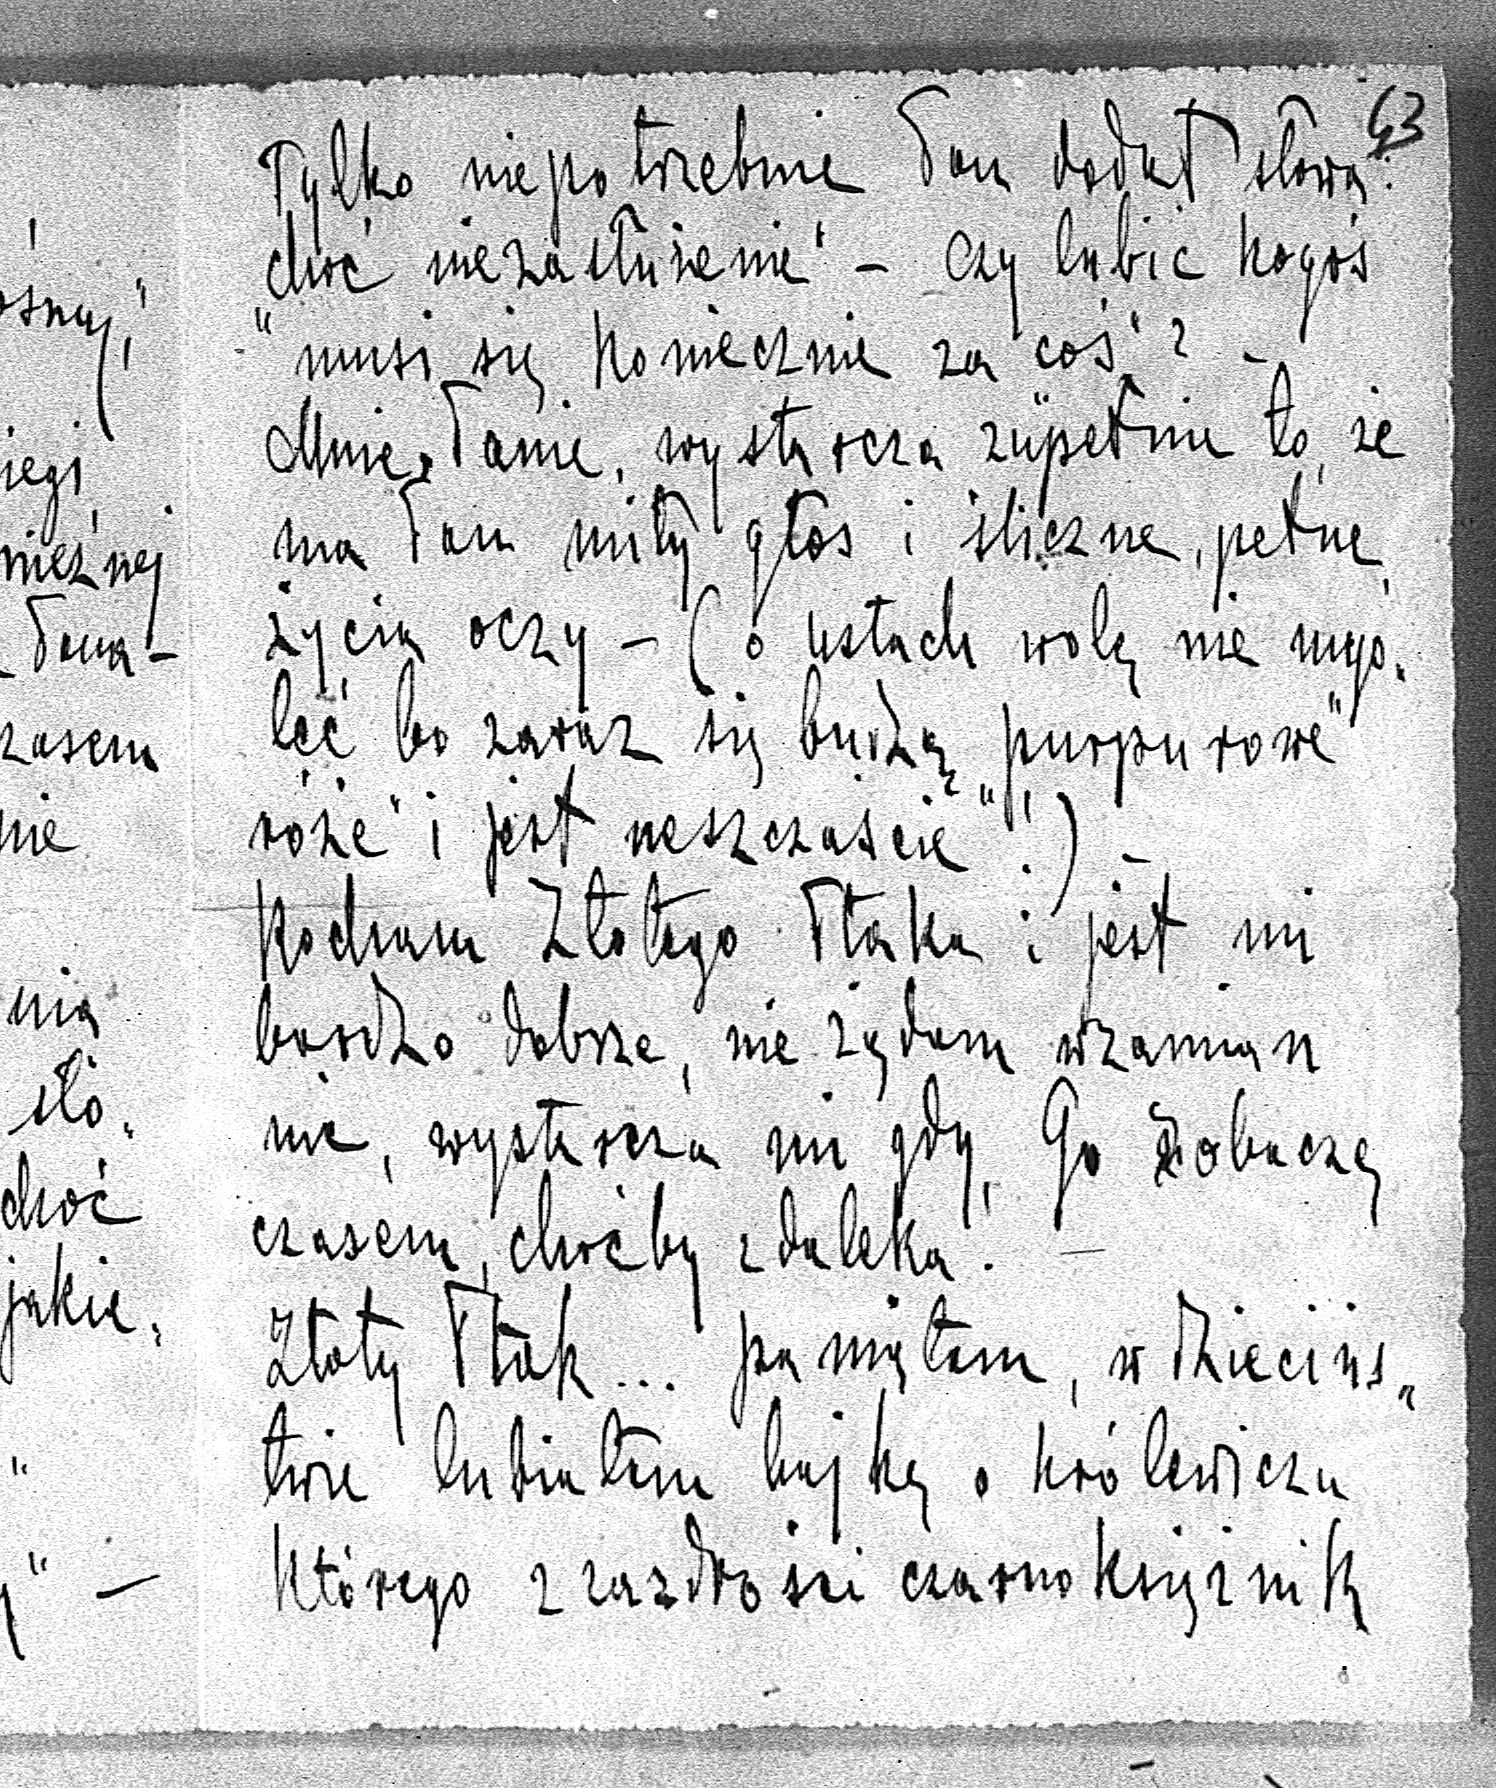 63
Tylko niepotrzebnie Pan dodał słowa:
choć niezasłużenie" – Czy lubić kogoś
"musi się koniecznie za coś"? –
Mnie, Panie, wystarcza zupełnie to, że
ma Pan miły głos i śliczne, pełne
życia oczy – (o ustach wolę nie myś„
leć bo zaraz się budzą "purpurowe"
róże" i jest "nieszczęście"!) –
Kocham Złotego Ptaka i jest mi
bardzo dobrze, nie żądam wzamian
nic, wystarcza mi gdy, Go zobaczę
czasem, choćby zdaleka! –
Złoty Ptak... pamiętam, w dziecińs„
twie lubiałam bajkę o królewiczu
którego z zazdrości czarnoksiężnik
ośnej,
śnieżnej
Pana –
czasem
nie
nią
sło„
choć
jakie„
" –